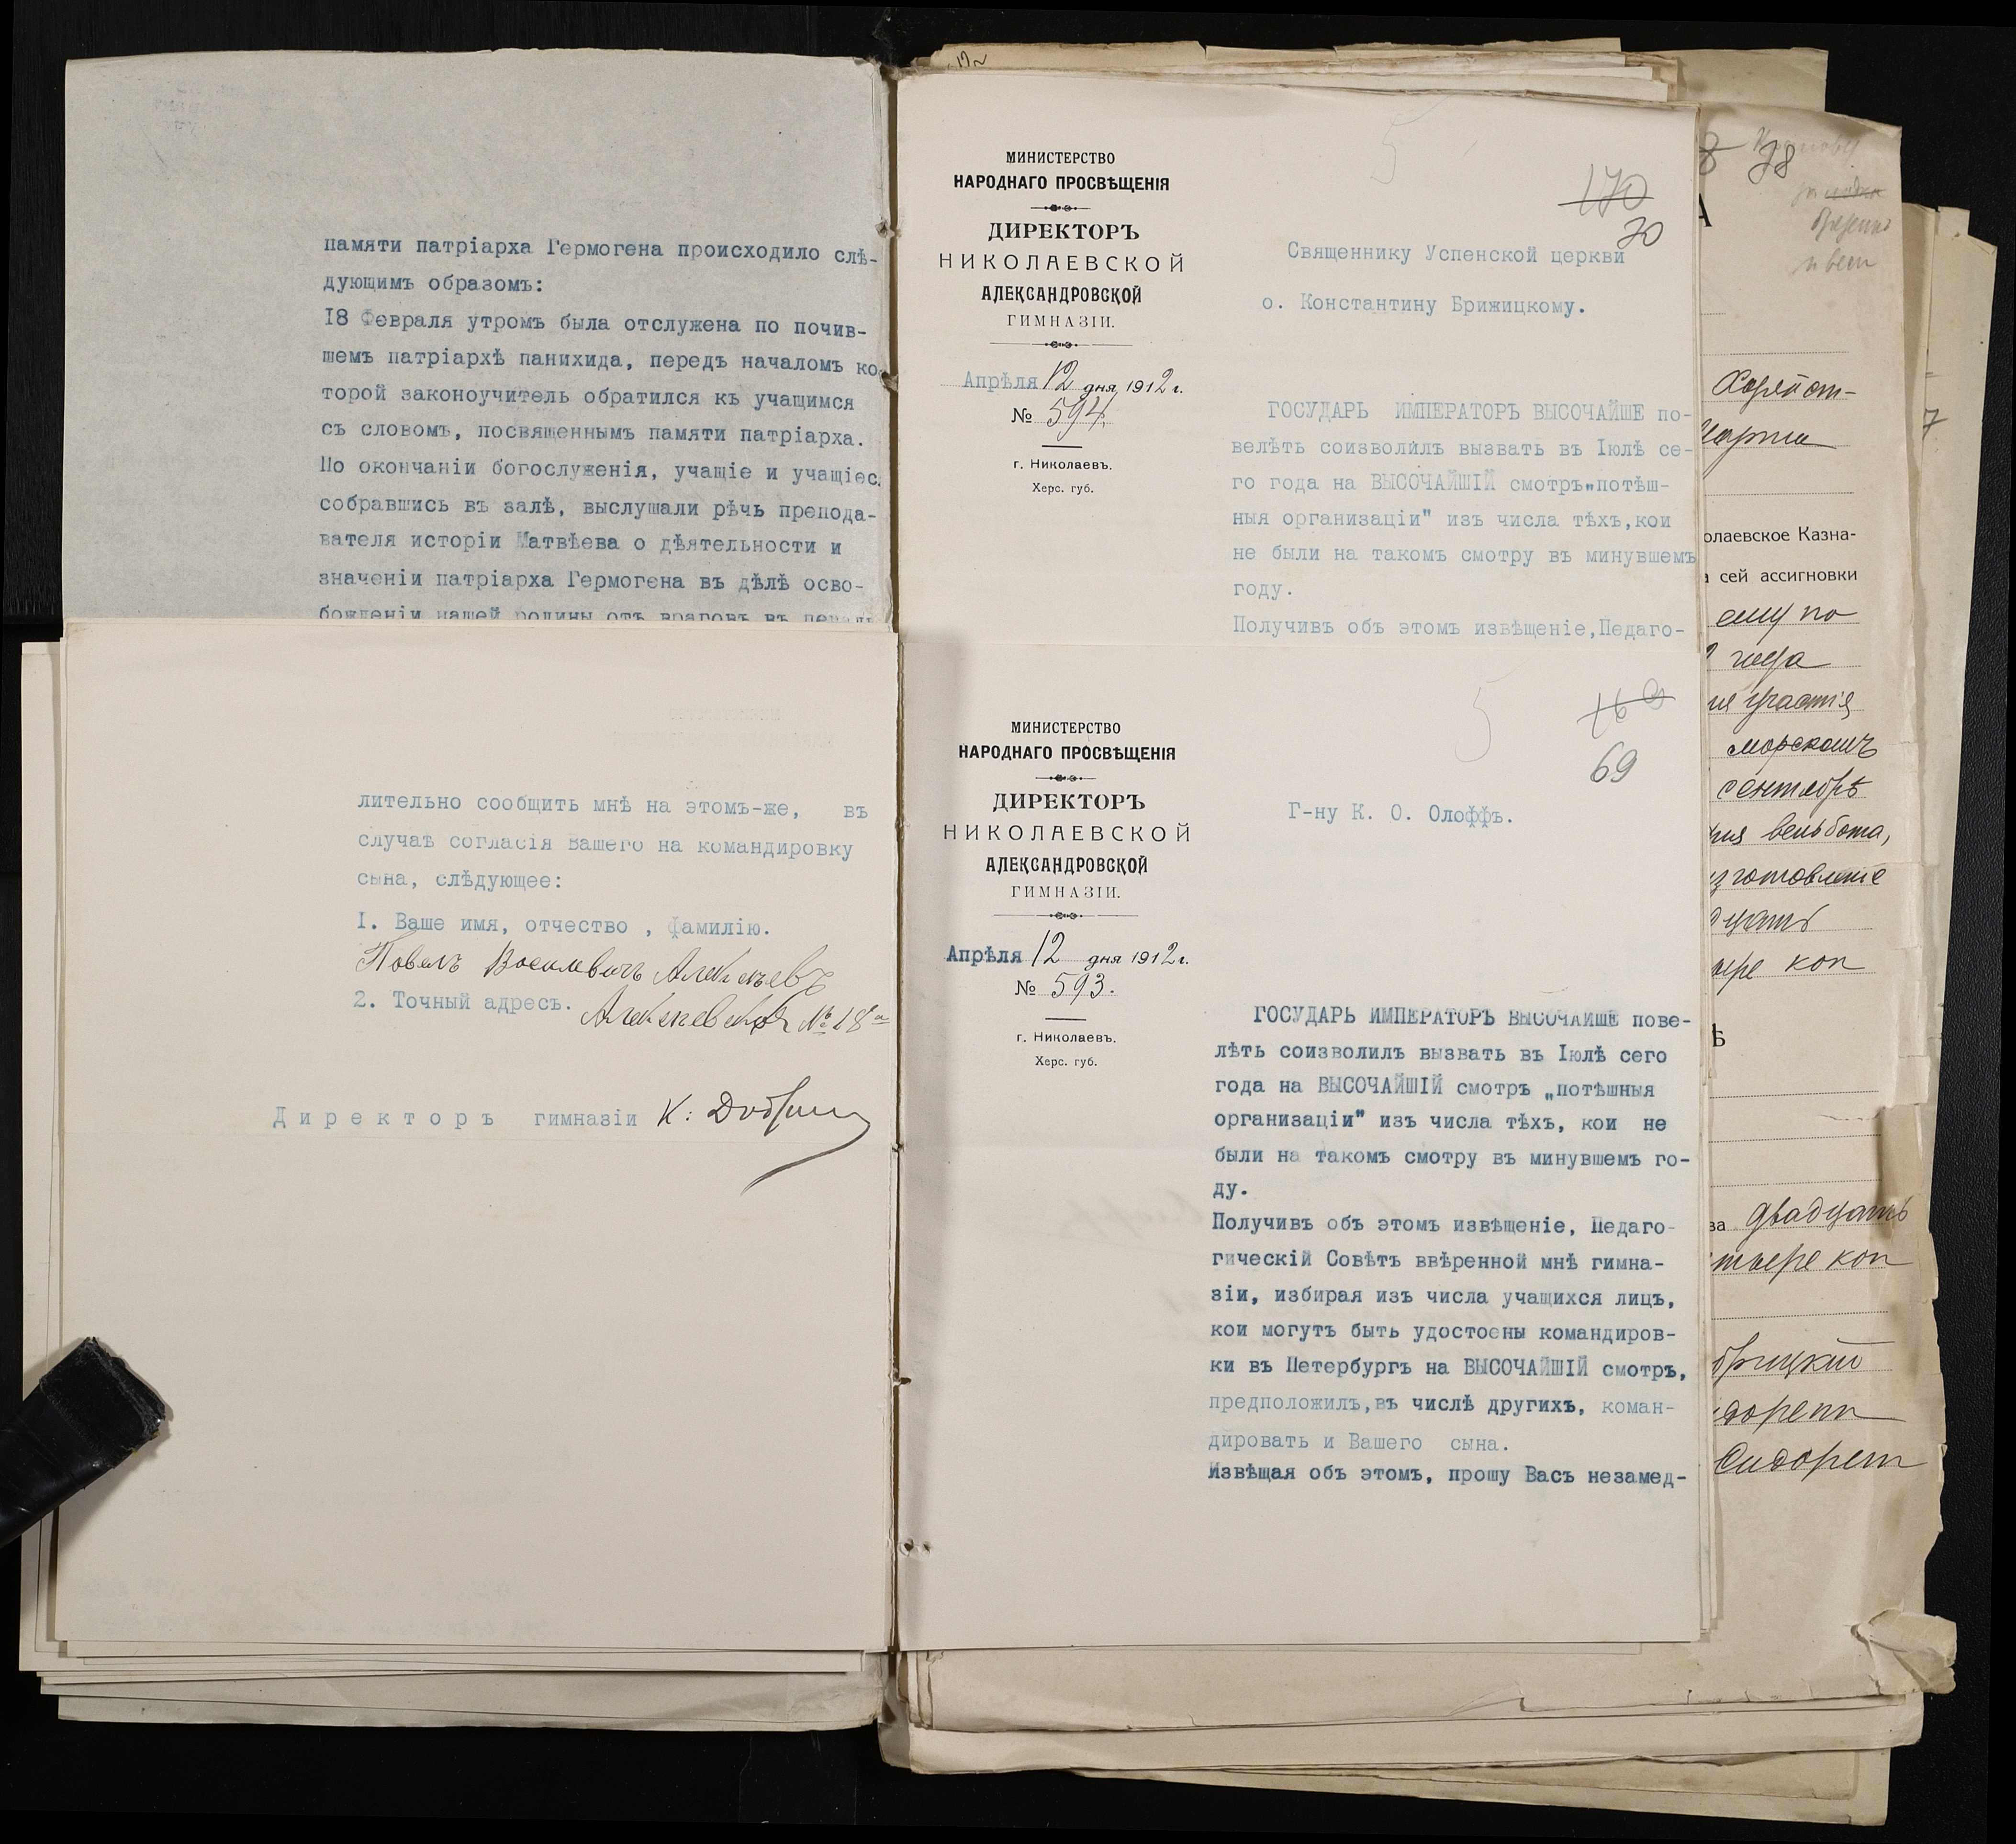 памяти патріарха Гермогена происходило слѣ-
дующимъ образомъ:
18 Февраля утромъ была отслужена по почив-
шемъ патріархѣ панихида, передъ началомъ ко
торой законоучитель обратился къ учащимся
съ словомъ, посвященнымъ памяти патріарха.
По окончаніи богослуженія, учащіе и учащіес
собравшись въ залѣ, выслушали рѣчь препода-
вателя исторіи Матвѣева о дѣятельности и
значеніи патріарха Гермогена въ дѣлѣ осво-
божденіи нашей родины отъ враговъ въ
лительно сообщить мнѣ на этомъ-же, въ
случаѣ согласія Вашего на командировку
сына, слѣдующее:
1. Ваше имя, отчество , фамилію.
Павелъ Васильевичъ Алексѣевъ
2. Точный адресъ.
№ 18
Директоръ гимназіи К:
МИНИСТЕРСТВО
НАРОДНАГО ПРОСВѢЩЕНІЯ
ДИРЕКТОРЪ
НИКОЛАЕВСКОЙ
АЛЕКСАНДРОВСКОЙ
ГИМНАЗІИ.
Апрѣля 12 дня 1912 г.
№ 594.
г. Николаевъ.
Херс. губ.
5
170
70
Священнику Успенской церкви
о. Константину Брижицкому.
ГОСУДАРЬ ИМПЕРАТОРЪ ВЫСОЧАЙШЕ по-
велѣть соизволилъ вызвать въ Іюлѣ се-
го года на ВЫСОЧАЙШІЙ смотръ„потѣш-
ныя организаціи" изъ числа тѣхъ,кои
не были на такомъ смотру въ минувшемъ
году.
Получивъ объ этомъ извѣщеніе,Педаго-
МИНИСТЕРСТВО
НАРОДНАГО ПРОСВѢЩЕНІЯ
ДИРЕКТОРЪ
НИКОЛАЕВСКОЙ
АЛЕКСАНДРОВСКОЙ
ГИМНАЗІИ.
Апрѣля 12 дня 1912 г.
№ 593.
г. Николаевъ.
Херс. губ.
5
169
69
Г-ну К. О. Олоффъ.
ГОСУДАРЬ ИМПЕРАТОРЪ ВЫСОЧАЙШЕ пове-
лѣть соизволилъ вызвать въ Іюлѣ сего
года на ВЫСОЧАЙШІЙ смотръ „потѣшныя
организаціи" изъ числа тѣхъ, кои не
были на такомъ смотру въ минувшемъ го-
ду.
Получивъ объ этомъ извѣщеніе, Педаго-
гическій Совѣтъ ввѣренной мнѣ гимна-
зіи, избирая изъ числа учащихся лицъ,
кои могутъ быть удостоены командиров-
ки въ Петербургъ на ВЫСОЧАЙШІЙ смотръ,
предположилъ,въ числѣ другихъ, коман-
дировать и Вашего сына.
Извѣщая объ этомъ, прошу Васъ незамед-
78
олаевское Казна-
сей ассигновки
ему по
года
участія
морскомъ
сентябрѣ
вельбота,
изготовленіе
коп
двадцать
коп